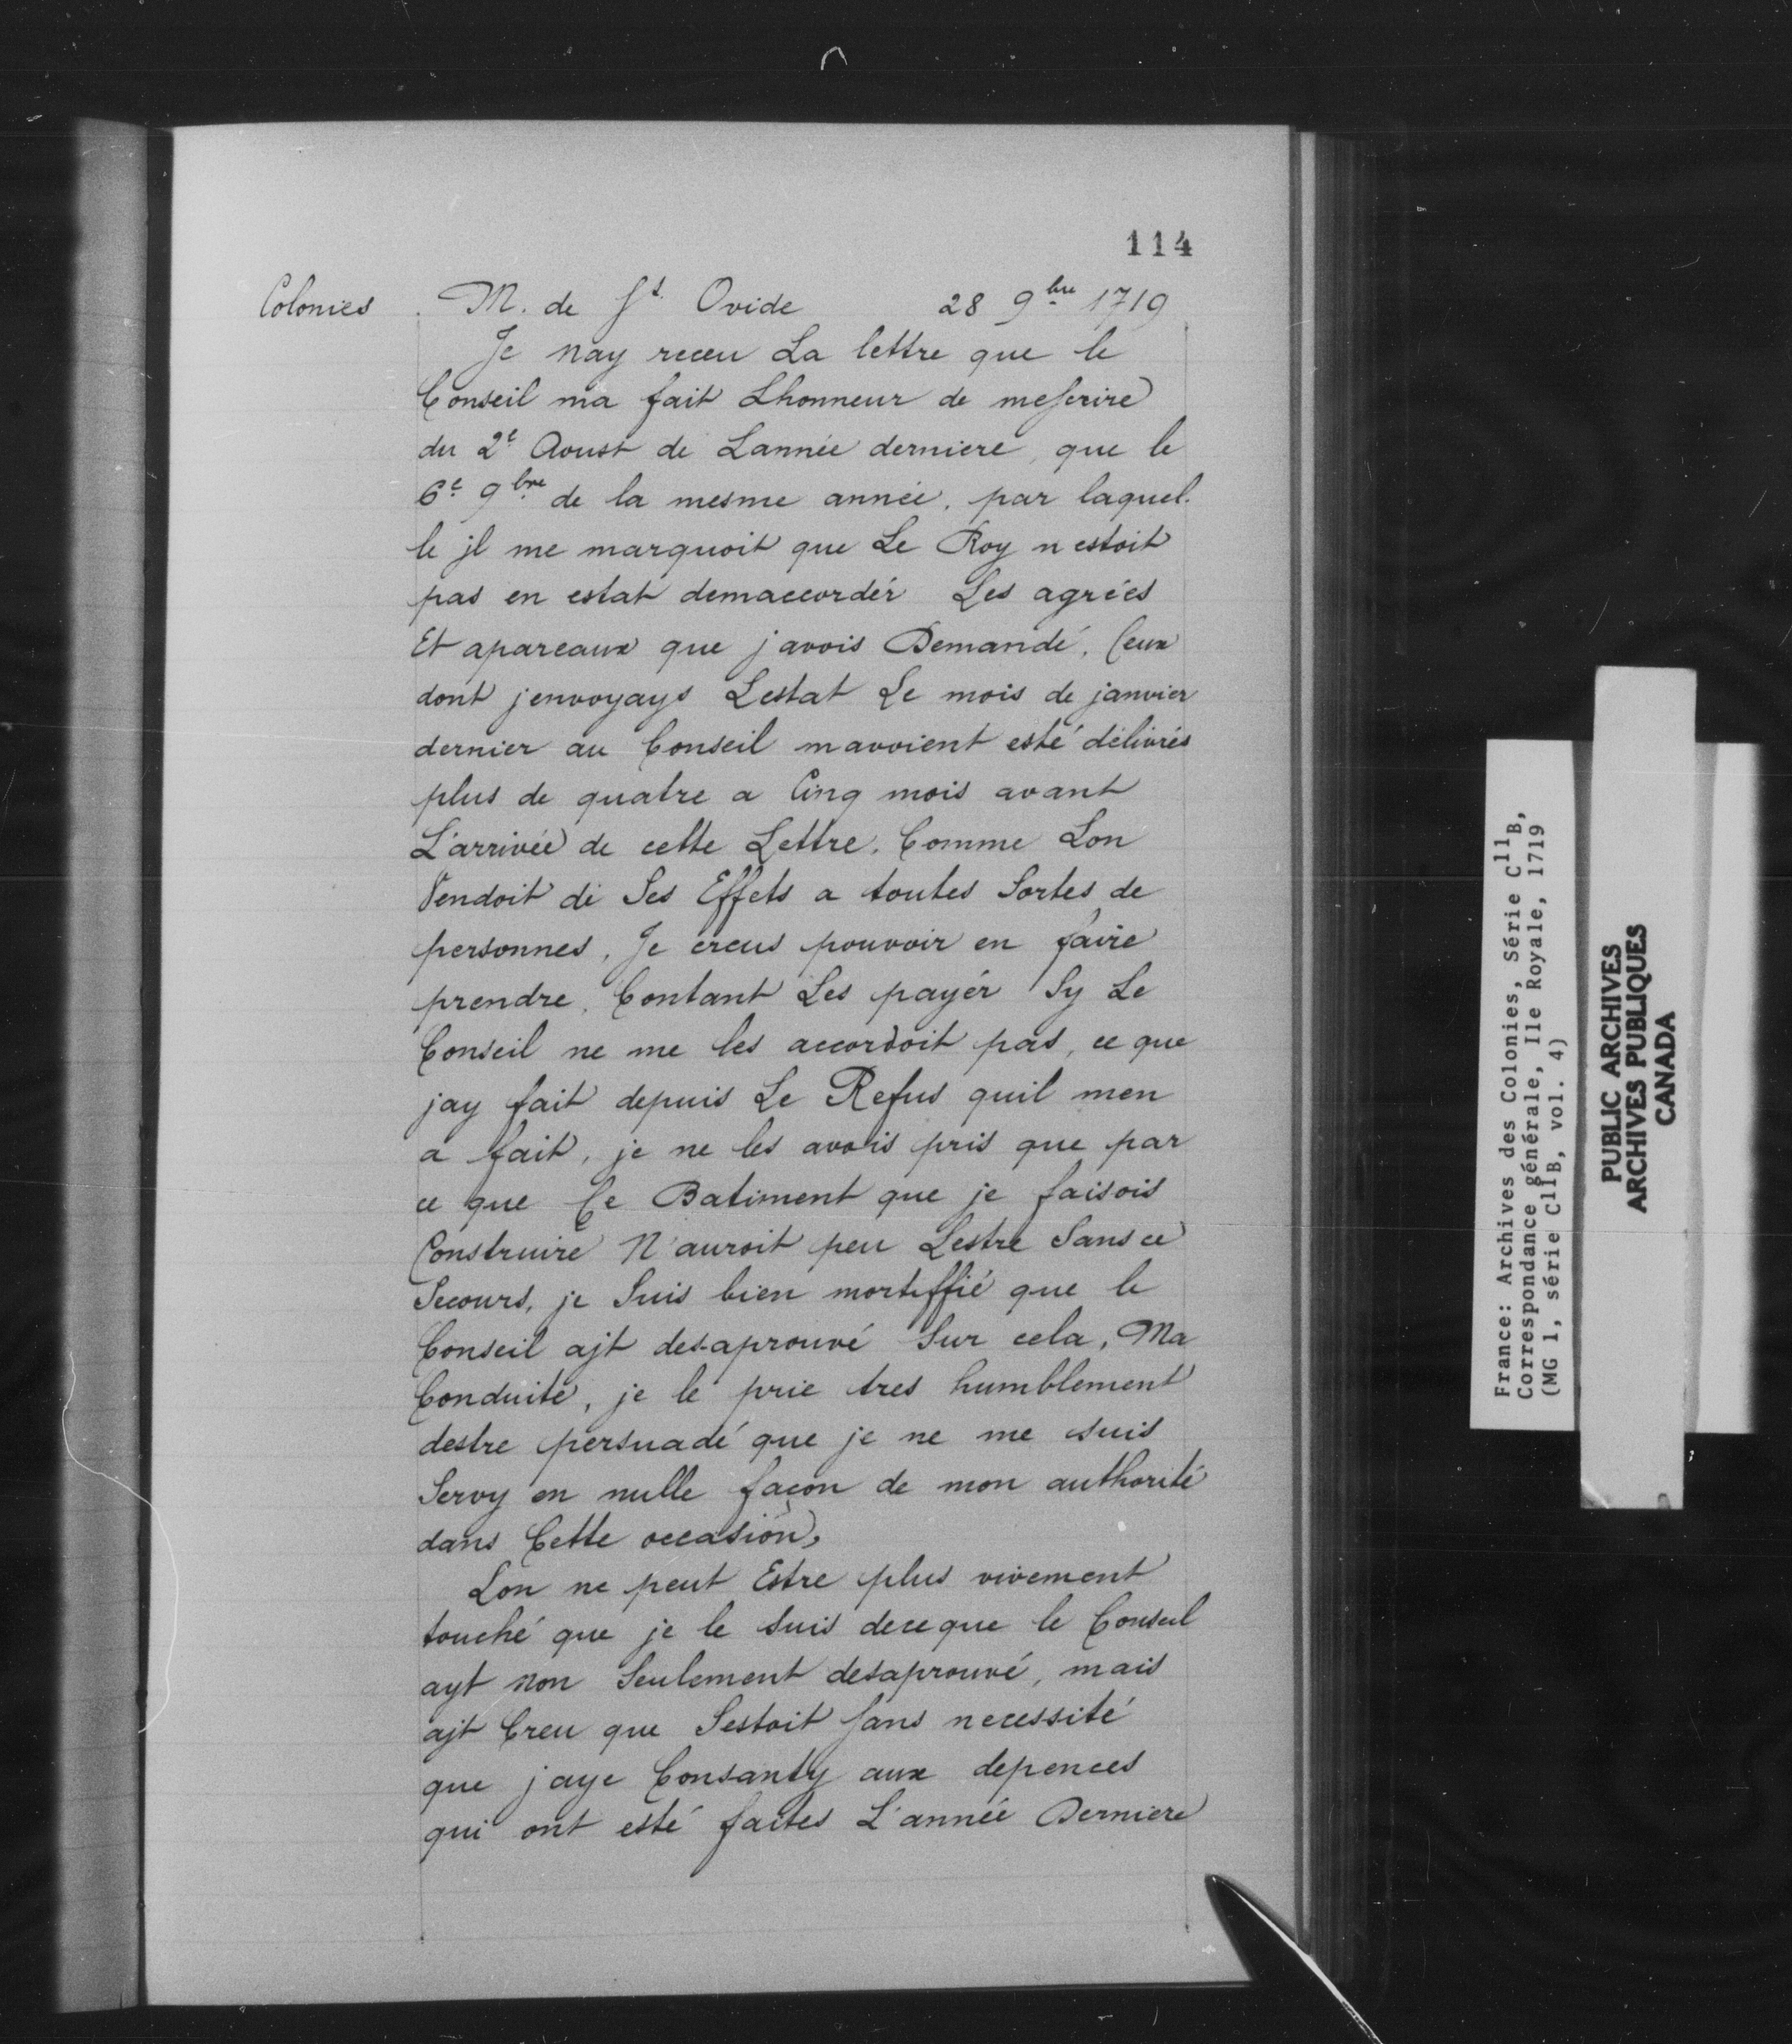 114
Colonies M. de St. Ovide 28 9bre 1719
Je nay receu La lettre que le
Conseil ma fait Lhonneur de mescrire
du 2e Aoust de Lannée derniere, que le
6e 9bre de la mesme année, par laquel.
le jl me marquoit que Le Roy n estoit
pas en estat demaccordér Les agréés
Et apareaux que javois Demandé. Ceux
dont jenvoyays Lestat Le mois de janvier
dernier au Conseil mavoient esté délivrés
plus de quatre a Cinq mois avant
L'arrivée de cette Lettre. Comme Lon
Vendoit di Ses Effets a toutes Sortes de
personnes, Je creus pouvoir en faire
prendre, Contant Les payér Sy Le
Conseil ne me les accordoit pas, ce que
jay fait depuis Le Refus quil men
a fait, je ne les avois pris que par
ce que Ce Batiment que je faisois
Construire N'auroit peu Lestre Sans ce
Secours, je Suis bien mortiffié que le
Conseil ajt desaprouvé Sur cela, Ma
Conduite, je le prie tres humblement
destre persuadé que je ne me suis
Servy en nulle façon de mon authorité
dans Cette occasion,
Lon ne peut Estre plus vivement
touché que je le suis deceque le Conseil
ayt non Seulement desaprouvé, mais
ajt Creu que Sestoit sans necessité
que jaye Consanty aux depences
qui ont esté faites L'année Derniere
France: Archives des Colonies, Série C11B,
Correspondance générale, Ile Royale, 1719
(MG 1, série C11B, vol. 4)
PUBLIC ARCHIVES
ARCHIVES PUBLIQUES
CANADA